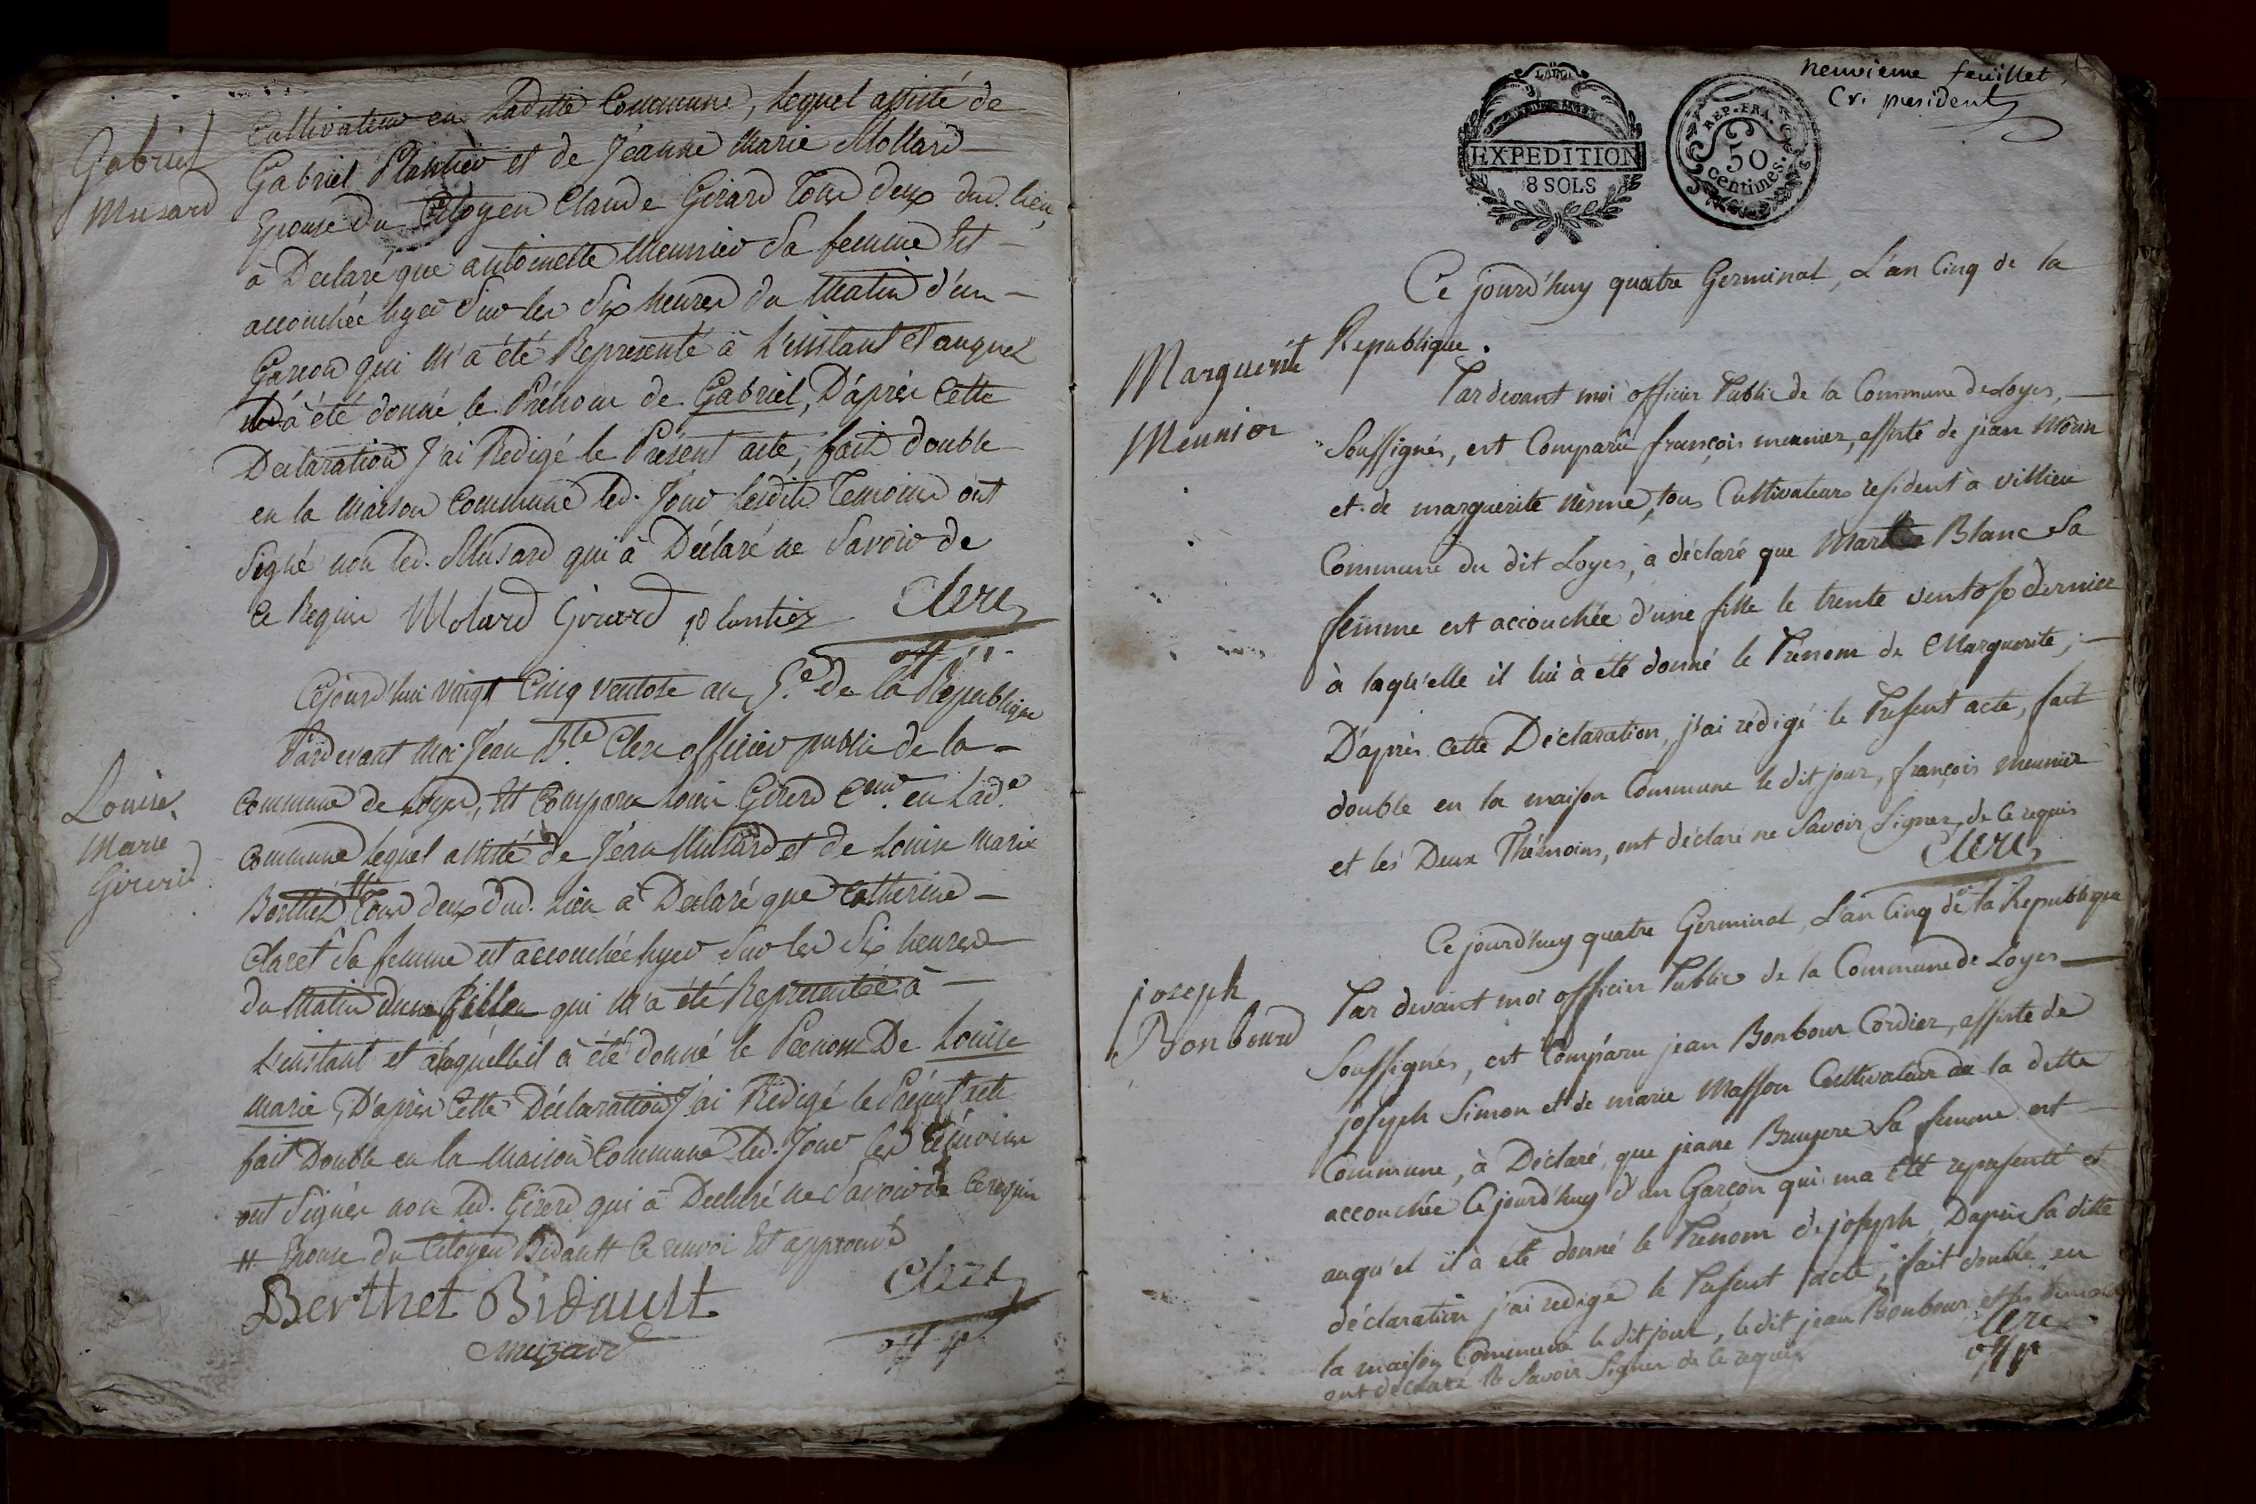 Gabriel
Musard
Cultivateur en Laditte Commune, Lequel assisté de
Gabriel Plantier et de Jeanne Marie Mollard
Epouse du Citoyen Claude Girard Tous deux dud. lieu,
à Declaré que antoinette Meunier Sa femme Est
accouchée hyer Sur les Six heures du Matin d'un
Garson qui M'a été Representé à L'instant et auquel
à été donné le Prénom de Gabriel, D'après Cette
Declaration J'ai Redigé le Présent acte, fait double
en la Maison Commune led. Jour Lesdits Temoins ont
Signé non led. Musard qui à Déclaré ne Savoir de
Ce Requis Molard Girard plantier Clerc
off. p.
Louise
Marie
Girerd
Cejourd'hui vingt Cinq ventose an 5.e de la Republique
Pardevant Moi Jean B.te Clerc officier public de la
Commune de Loyes, Est Comparu Louis Girerd Cur. en Lad.e
Commune Lequel assisté de Jean Musard et de Louise Marie
Berthet # Tous deux dud. Lieu à Déclaré que Catherine
Claret Sa femme est accouchée hyer Sur les Six heures
du Matin dune fille qui M'a été Representée à
L'instant et àlaquelle il à été donné le Prenom De Louise
Marie, D'après Cette Déclaration J'ai Rédigé le Présent acte
fait Double en la Maison Commune led. Jour Les témoins
ont Signés non led. Girerd qui à Declaré ne Savoir de Ce requis
# Epouse du Citoyen Bidault Ce renvoi Est approuvé
Berthet Bidault Clerc
Muzard off. p.
neuvieme feuillet,
Cr. president
EXPEDITION
8 SOLS
REP. FRA.
50
centimes.
Ce jourd'huy quatre Germinal, L'an Cinq de la
Republique.
Marguerite
Meunier
Par devant moi officier Public de la Commune de Loyes,
Soussignés, est Comparû françois meunier, assisté de jean Morin
et de marguerite Nesme, tous Cultivateurs résident à villieu
Commune du dit Loyes, à déclaré que Marthe Blanc Sa
femme est accouchée d'une fille le trente ventose dernier
à laqu'elle il lui à été donné le Prenom de Marguerite,
D'après Cette Déclaration, j'ai rédigé le Présent acte, fait
double en la maison Commune le dit jour, françois meunier
et les Deux Thémoins, ont déclaré ne Savoir Signer, de Ce requis
Clerc
joseph
Bonbourd
Ce jourd'huy quatre Germinal, L'an Cinq de la Republique
Par devant moi officier Public de la Commune de Loyes
Soussignés, est Comparu jean Bonbour Cordier, assisté de
joseph Simon et de marie Masson Cultivateur de la ditte
Commune, à Déclaré, que jeane Bruyere Sa femme est
accouchée Ce jourd'huy d'un Garçon qui ma été représenté et
auqu'el il à été donné le Prenom de joseph, Dapris Sa ditte
déclaration j'ai redigé le Présent acte, fait double en
la maison Commune le dit jour, le dit jean Bonbour et les temoins
ont déclaré ne Savoir Signer de Ce requis
Clerc
off. p.